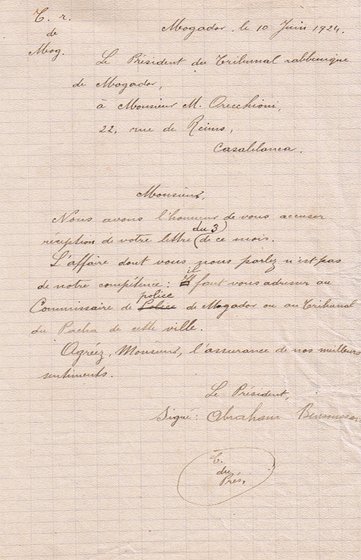 T. r.
de
Mog.
Mogador, le 10 Juin 1924.
Le Président du Tribunal rabbinique
de Mogador,
à Monsieur M. Orecchioni,
22, rue de Reims,
Casablanca.
Monsieur,
Nous avons l'honneur de vous accuser
réception de votre lettre (du 3) de ce mois.
L'affaire dont vous nous parlez n'est pas
de notre compétence : il faut vous adresser au
Commissaire de police de Mogador ou au Tribunal
du Pacha de cette ville.
Agréez, Monsieur, l'assurance de nos meilleurs
sentiments.
Le Président,
Signé : Abraham
T.
du
Prés.